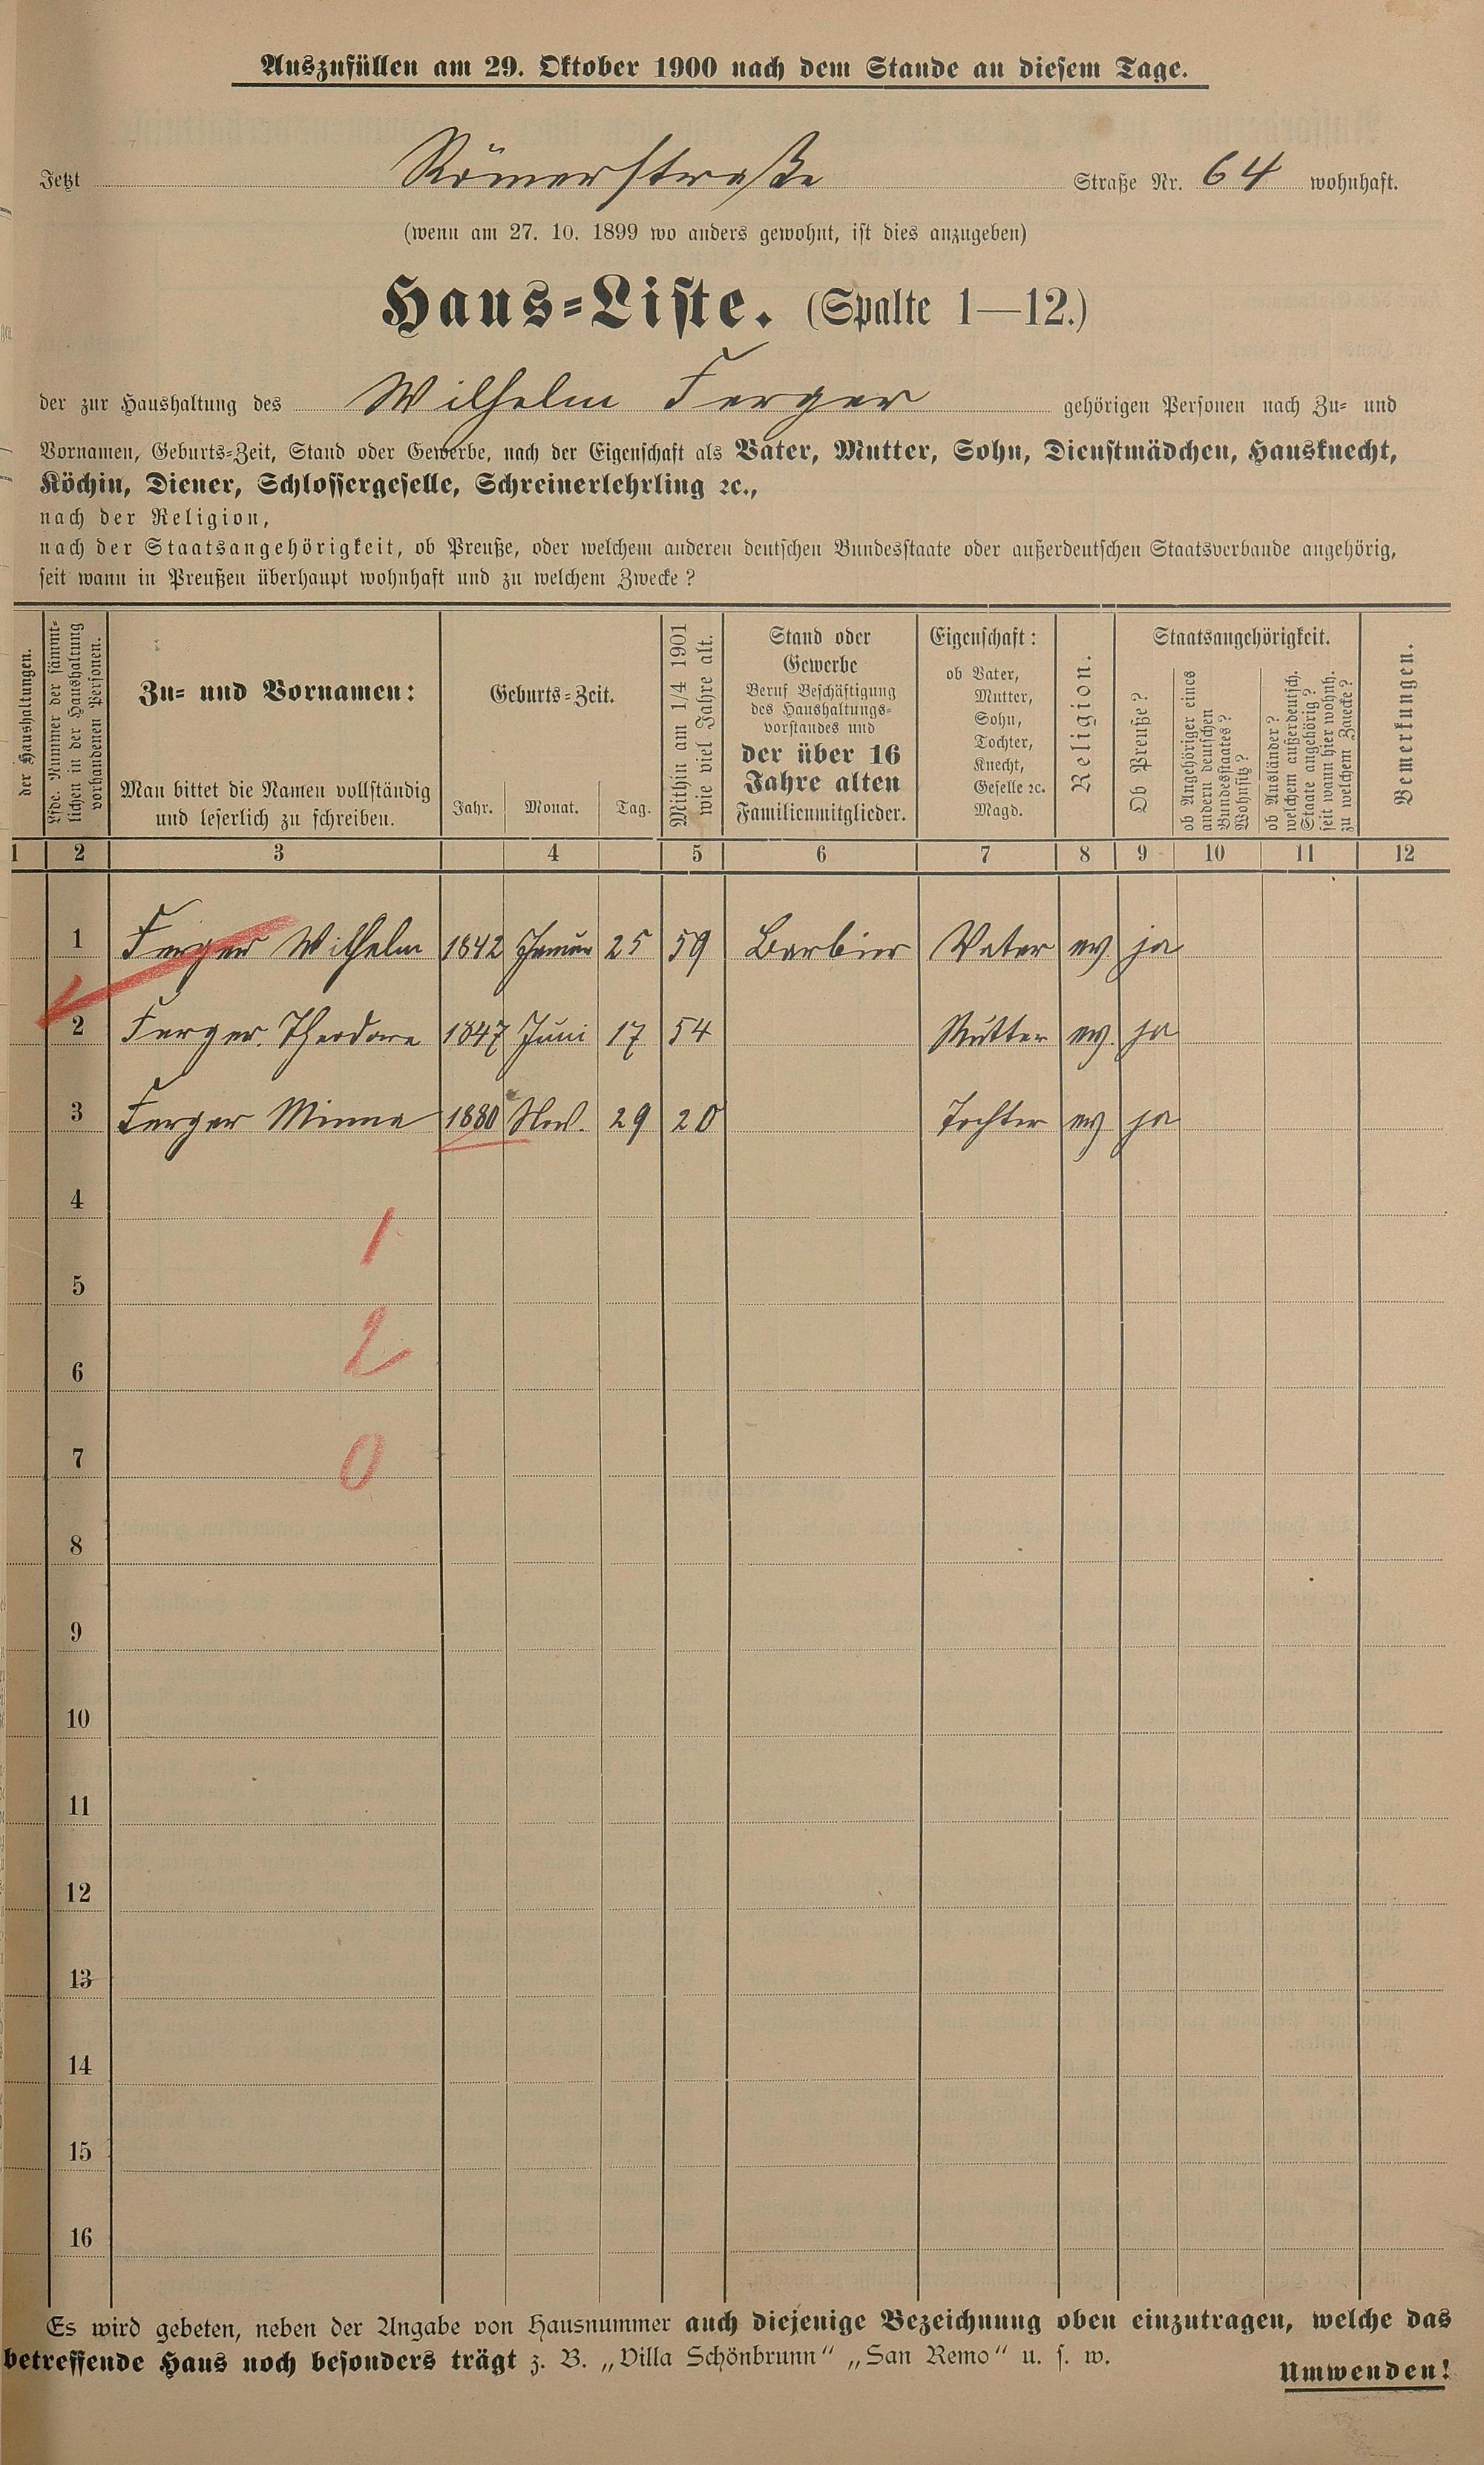 Auszufüllen am 29. Oktober 1900 nach dem Stande an diesem Tage.
Jetzt Römerstraße Straße Nr. 64 wohnhaft.
(wenn am 27. 10. 1899 wo anders gewohnt, ist dies anzugeben)
Haus-Liste. (Spalte 1—12.)
der zur Haushaltung des Wilhelm Ferger gehörigen Personen nach Zu- und
Vornamen, Geburts-Zeit, Stand oder Gewerbe, nach der Eigenschaft als Vater, Mutter, Sohn, Dienstmädchen, Hausknecht,
Köchin, Diener, Schlossergeselle, Schreinerlehrling ꝛc.,
nach der Religion,
nach der Staatsangehörigkeit, ob Preuße, oder welchem anderen deutschen Bundesstaate oder außerdeutschen Staatsverbande angehörig,
seit wann in Preußen überhaupt wohnhaft und zu welchem Zwecke?
der Haushaltungen.
Lfde. Nummer der sämmt-
lichen in der Haushaltung
vorhandenen Personen.
Zu- und Vornamen:
Man bittet die Namen vollständig
und leserlich zu schreiben.
Geburts-Zeit.
Jahr. Monat. Tag.
Mithin am 1/4 1901
wie viel Jahre alt.
Stand oder
Gewerbe
Beruf Beschäftigung
des Haushaltungs-
vorstandes und
der über 16
Jahre alten
Familienmitglieder.
Eigenschaft:
ob Vater,
Mutter,
Sohn,
Tochter,
Knecht,
Geselle ꝛc.
Magd.
Religion.
Staatsangehörigkeit.
Ob Preuße?
ob Angehöriger eines
andern deutschen
Bundesstaates?
Wohnsitz?
ob Ausländer?
welchem außerdeutsch.
Staate angehörig?
seit wann hier wohnh.
zu welchem Zwecke?
Bemerkungen.
1 2 3 4 5 6 7 8 9 10 11 12
1 Ferger Wilhelm 1842 Januar 25 59 Barbier Vater ev. ja
2 Ferger. Theodore 1847 Juni 17 54 Mutter ev. ja
3 Ferger Minna 1880 Nov. 29 20 Tochter ev. ja
4
1
5
2
6
7
0
8
9
10
11
12
13
14
15
16
Es wird gebeten, neben der Angabe von Hausnummer auch diejenige Bezeichnung oben einzutragen, welche das
betreffende Haus noch besonders trägt z. B. „Villa Schönbrunn“ „San Remo“ u. s. w.
Umwenden!